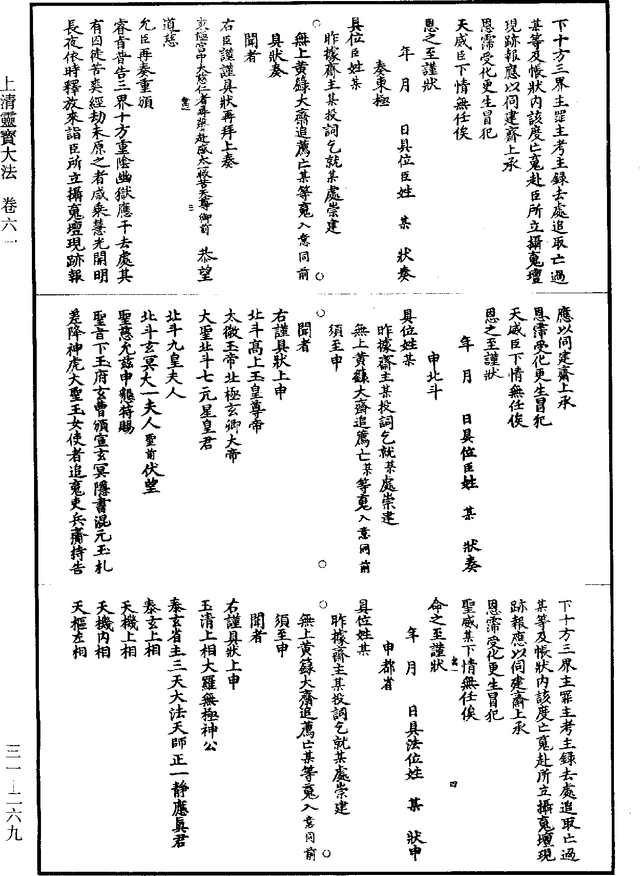 上清靈寶大法　卷六一
下十方三界主罪主考主錄去處追取亡過
某等及帳狀內該度亡䰟赴臣所立攝䰟壇
現跡報應以伺建齋上承
恩霈受化更生冒犯
天威臣下情無任俟
恩之至謹狀
年　月　日具位臣姓　某　狀奏
奏東極
具位臣姓某
昨據齋主某投詞乞就某處崇建
無上黃籙大齋追薦亡某等䰟入意同前
聞者
具狀奏
右臣謹謹具狀再拜上奏
東極宮中大慈仁者尋聲赴感太一救苦天尊御前　恭望
道慈
允臣再奏重頒
睿旨普告三界十方重陰幽獄應干去處其
有囚徒苦爽經劫未原之者咸乘慧光開明
長夜依時釋放來詣臣所立攝䰟壇現跡報
應以伺建齋上承
恩霈受化更生冒犯
天威臣下情無任俟
恩之至謹狀
年　月　日具位臣姓　某　狀奏
申北斗
具位姓某
昨據齋主某投詞乞就某處崇建
無上黃籙大齋追薦亡某等䰟入意同前
須至申
聞者
右謹具狀上申
北斗高上玉皇尊帝
太微玉帝北極玄卿大帝
大聖北斗七元星皇君
北斗九皇夫人
北斗玄冥大一夫人聖前伏望
聖慈允茲申懇特賜
聖旨下玉府玄曹頒宣玄冥隱書混元玉札
差降神虎大聖玉女使者追䰟吏兵齎持告
下十方三界主罪主考主錄去處追取亡過
某等及帳狀內該度亡䰟赴所立攝䰟壇現
跡報應以伺建齋上承
恩霈受化更生冒犯
聖威某下情無任俟
命之至謹狀
年　月　日具法位姓　某　狀申
申都省
具位姓某
昨據齋主某投詞乞就某處崇建
無上黃籙大齋追薦亡某等䰟入意同前
須至申
聞者
右謹具狀上申
玉清上相大羅無極神公
泰玄省主三天大法天師正一靜應真君
泰玄上相
天機上相
天機內相
天樞左相
三一—一六九